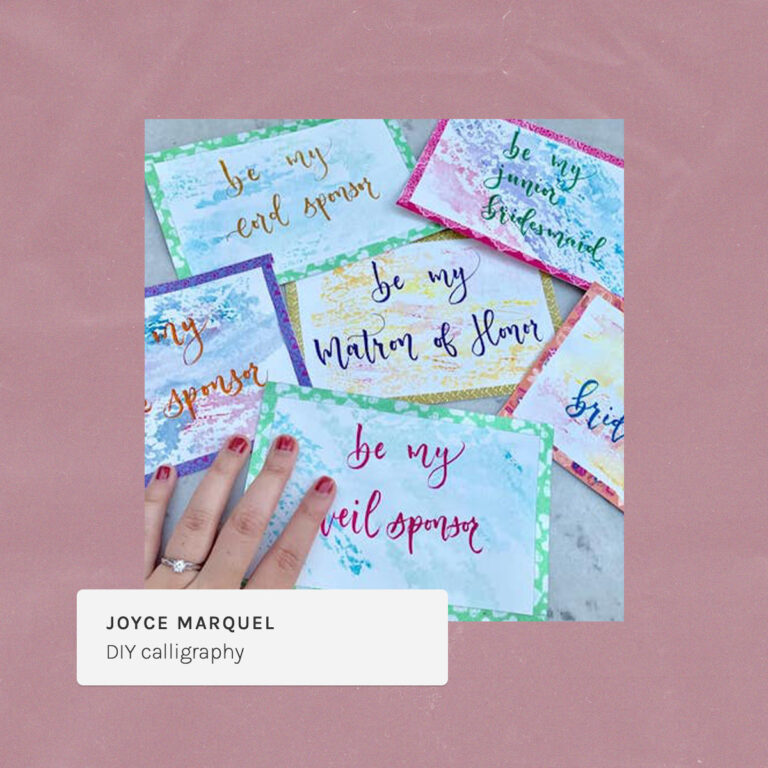 be my
cord sponsor
be my
junior
bridesmaid
be my
Matron of Honor
my
sponsor
brid
be my
veil sponsor
JOYCE MARQUEL
DIY calligraphy